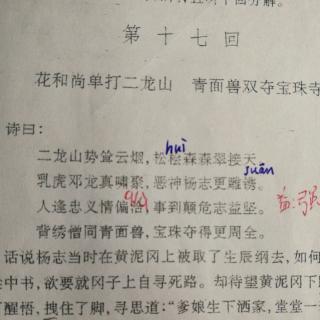 第十七回
花和尚单打二龙山 青面兽双夺宝珠寺
诗曰:
huì
二龙山势耸云烟,松桧森森翠接天
suān
乳虎邓龙真啸聚,恶神杨志更雕
qià
人逢忠义情偏洽,事到颠危志益坚。
背绣僧同青面兽,宝珠夺得更周全。
话说杨志当时在黄泥冈上被取了生辰纲去,如何
中书,欲要就冈子上自寻死路。却待望黄泥冈下
了醒悟,拽住了脚,寻思道:“爹娘生下洒家,堂堂一